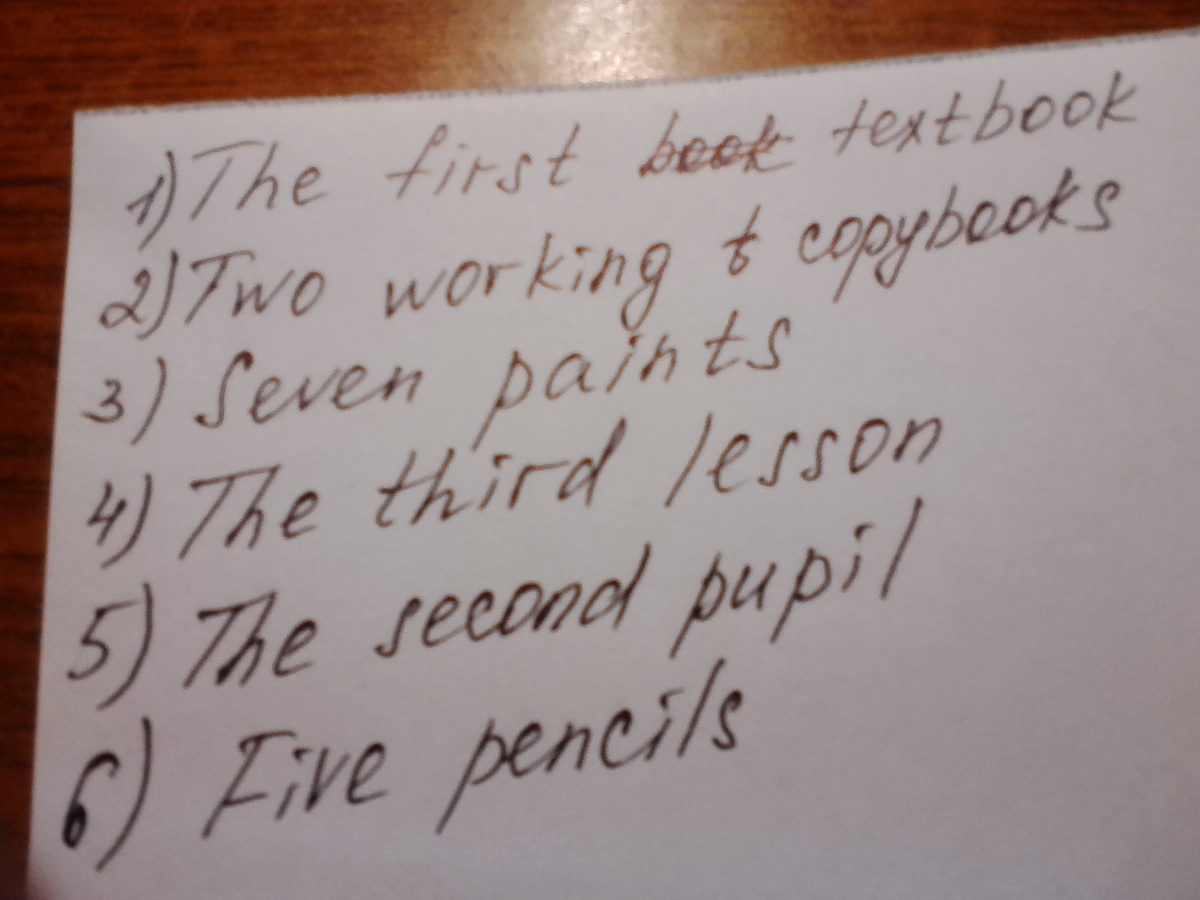 1) The first book textbook
2) Two working t copybooks
3) Seven paints
4) The third lesson
5) The second pupil
6) Five pencils